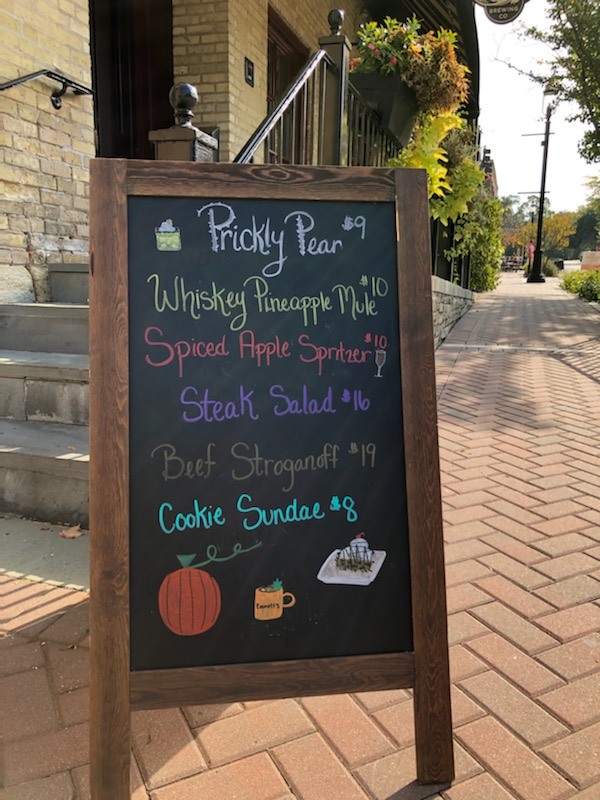 BREWING
CO
Prickly Pear $9
Whiskey Pineapple Mule $10
Spiced Apple Spritzer $10
Steak Salad $16
Beef Stroganoff $19
Cookie Sundae $8